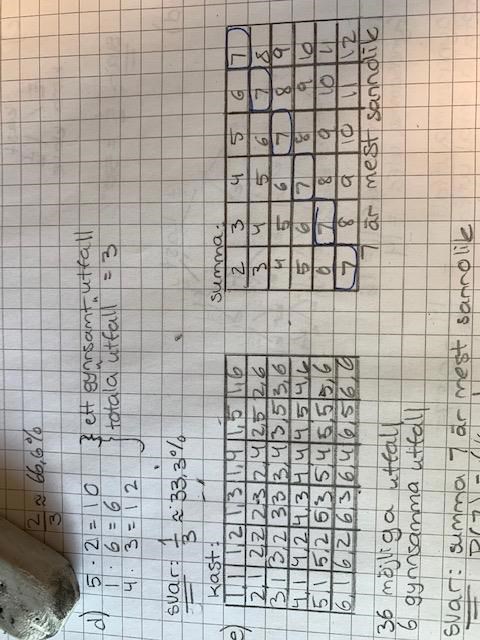 2/3 ≈ 66,6%
d) 5 · 2 = 10
1 · 6 = 6
4 · 3 = 12
} ett "gynnsamt" utfall
totala utfall = 3
svar: 1/3 ≈ 33,3%
e) kast:
1,1 1,2 1,3 1,4 1,5 1,6
2,1 2,2 2,3 2,4 2,5 2,6
3,1 3,2 3,3 3,4 3,5 3,6
4,1 4,2 4,3 4,4 4,5 4,6
5,1 5,2 5,3 5,4 5,5 5,6
6,1 6,2 6,3 6,4 6,5 6,6
summa:
2 3 4 5 6 7
3 4 5 6 7 8
4 5 6 7 8 9
5 6 7 8 9 10
6 7 8 9 10 11
7 8 9 10 11 12
7 är mest sannolik
36 möjliga utfall
6 gynnsamma utfall
svar: summa 7 är mest sannolik